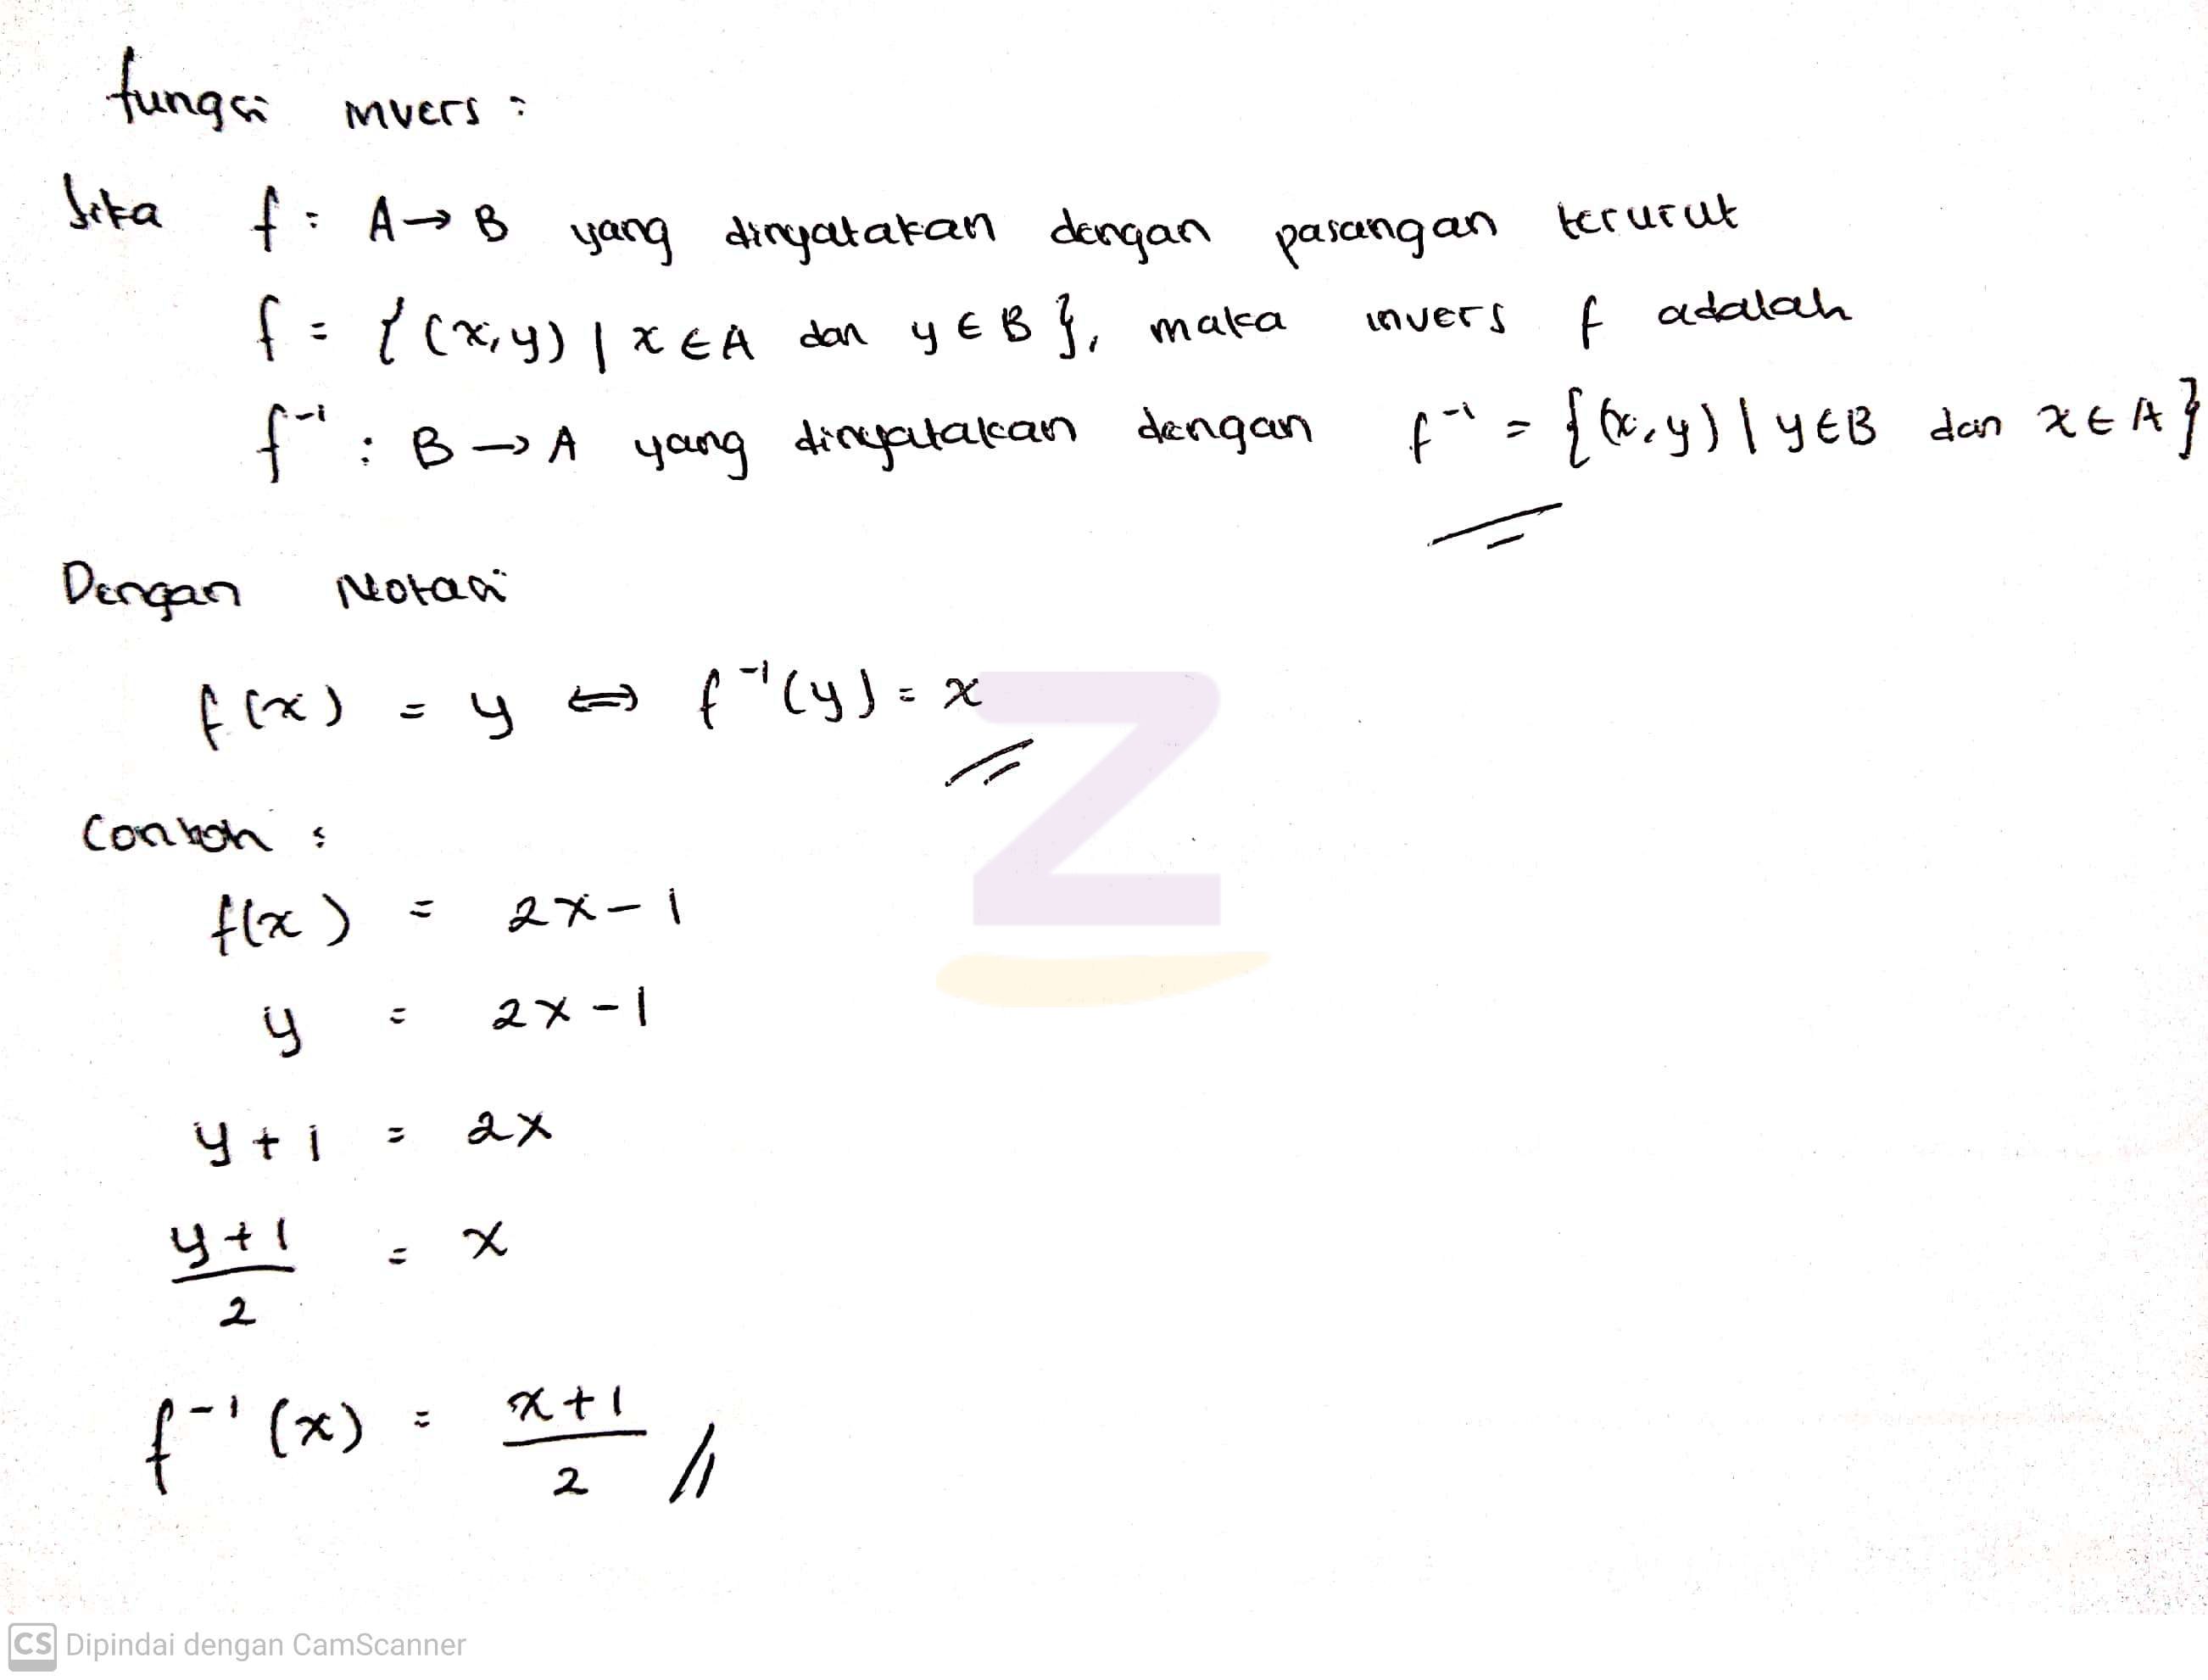 fungsi invers :
Jika f : A → B yang dinyatakan dengan pasangan terurut
f = { (x,y) | x ∈ A dan y ∈ B }, maka invers f adalah
f⁻¹ : B → A yang dinyatakan dengan f⁻¹ = { (x,y) | y ∈ B dan x ∈ A }
Dengan Notasi
f(x) = y ⇔ f⁻¹(y) = x
Contoh :
f(x) = 2x - 1
y = 2x - 1
y + 1 = 2x
y + 1 / 2 = x
f⁻¹(x) = x + 1 / 2 //
Z
CS Dipindai dengan CamScanner